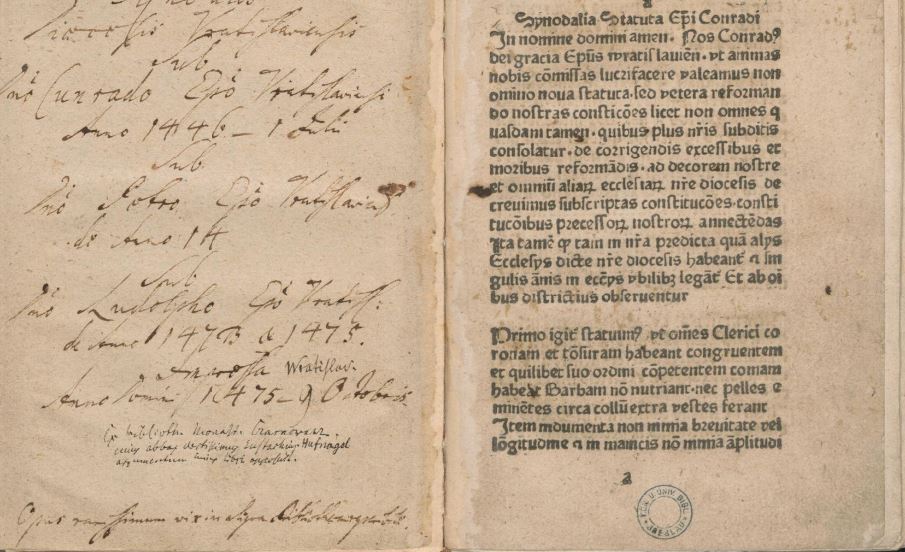 Diocesis Vratislaviensis
Sub
Cunrado Epō Vratislaviensi
Anno 1446 – 1 Julii
Sub
Petro Epō
de Anno 14
Sub
Rudolpho Epō Vratisl:
de Anno 1473 & 1475.
Impressa Wratislav.
Anno Domini 1475 – 9 Octobris
Ex biblioth. Monast. Czarnowanz.
cuius abbas doctissimus Eustachius Hufnagel
argumentum huius libri
Opus rarissimum vix in aliqua
a
Synodalia Statuta Ep̄i Conradi
In nomine domini amen. Nos Conradꝰ
dei gracia Ep̄us wratislauień. vt animas
nobis cōmissas lucrifacere valeamus non
omīno noua statuta. sed vetera reforman
do nostras consticōēs licet non omnes q
uasdam tamen. quibus plus nr̄is subditis
consolatur. de corrigendis excessibus et
moribus reformādis. ad decorem nostre
et omniū aliaꝝ ecclesiaꝝ nr̄e diocesis de
creuimus subscriptas constitucōes. consti
tucōibus precessoꝝ nostroꝝ annectēdas
Ita tamē ꝙ tam in nr̄a predicta quā alys
Ecclesys dicte nr̄e diocesis habeant̄ ⁊ sin
gulis ānis in ecc̄ys legāt̄ Et ab oī
bus districtius obseruentur
Primo igit̄ statuimꝰ vt om̄es Clerici co
ronam et tōsuram habeant congruentem
et quilibet suo ordini cōpetentem comam
habeat Barbam nō nutriant. nec pelles e
minētes circa collū extra vestes ferant
Item indumenta non nimia breuitate vel
lōgitudine ⁊ in manicis nō nimia āplitudi
a
UNIV. BIBL.
BRESLAU